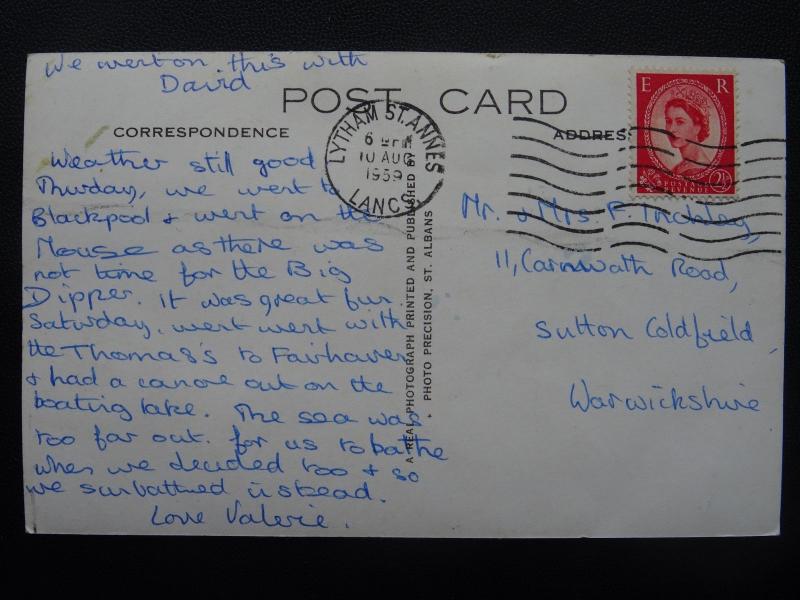 We went on this with
David
POST CARD
CORRESPONDENCE
ADDRES
LYTHAM ST. ANNES
6 PM
10 AUG
1959
LANCS
E R
POSTAGE
REVENUE
2½
Weather still good
Thurday, we went to
Blackpool & went on the
Mouse as there was
not time for the Big
Dipper. It was great fun.
Saturday, went went with
the Thomas's to Fairhaven
& had a canoe out on the
boating lake. The sea was
too far out. for us to bathe
when we decided too & so
we sunbathed instead.
Love Valerie.
A REAL PHOTOGRAPH PRINTED AND PUBLISHED BY
PHOTO PRECISION, ST. ALBANS
Mr. & Mrs F.
11, Carnwath Road,
Sutton Coldfield,
Warwickshire